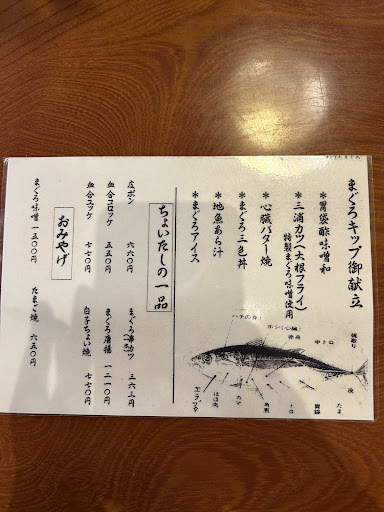 まぐろキップ御献立
*胃袋酢味噌和
*三浦カツ(大根フライ)
特製まぐろ味噌使用
*心臓バター焼
*地魚あら汁
*まぐろ三色丼
*まぐろアイス
ハチの身
ホシ(心臓)
赤身
中トロ
エラブタ
ほほ肉
カマ
トロ
胃袋
たま
皮
ちょいたしの一品
皮ポン 六六〇円
血合コロッケ 五五〇円
血合ユッケ 七七〇円
三六三円
まぐろ唐揚 一二一〇円
白子ちょい焼 七七〇円
おみやげ
まぐろ味噌 一五〇〇円
たまご焼 六五〇円